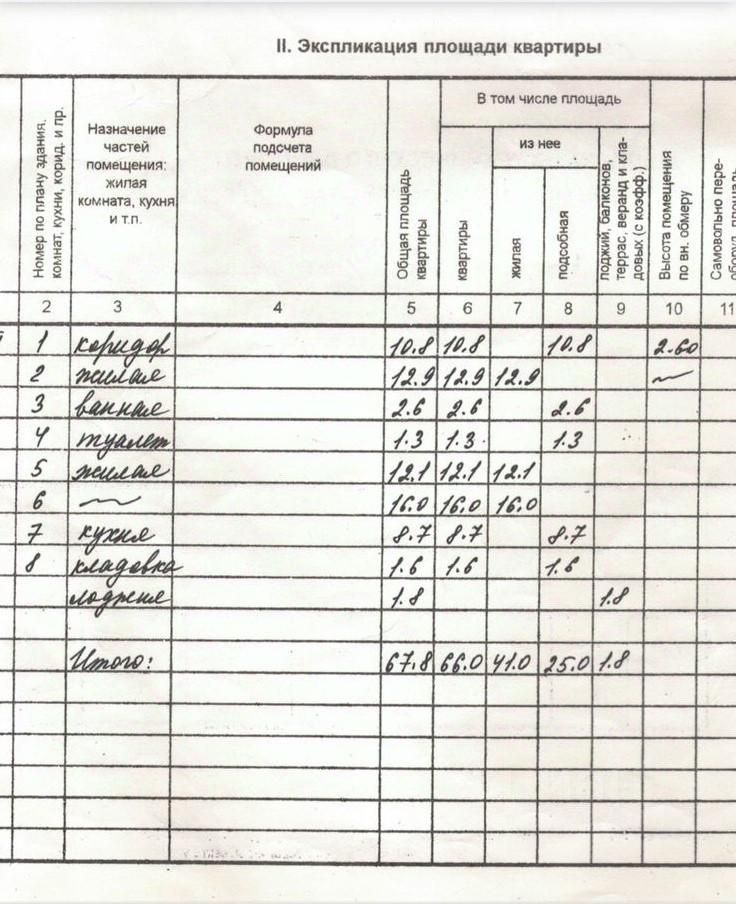 II. Экспликация площади квартиры
Номер по плану здания, комнат, кухни, корид. и пр.
Назначение
частей
помещения:
жилая
комната, кухня
и т.п.
Формула
подсчета
помещений
Общая площадь
квартиры
В том числе площадь
квартиры
из нее
жилая
подсобная
лоджий, балконов,
террас, веранд и кла-
довых (с коэфф.)
Высота помещения
по вн. обмеру
Самовольно пере-
оборуд. площадь
2 3 4 5 6 7 8 9 10 11
1 коридор 10.8 10.8 10.8 2.60
2 жилая 12.9 12.9 12.9 —
3 ванная 2.6 2.6 2.6
4 туалет 1.3 1.3 1.3
5 жилая 12.1 12.1 12.1
6 — 16.0 16.0 16.0
7 кухня 8.7 8.7 8.7
8 кладовка 1.6 1.6 1.6
лоджия 1.8 1.8
Итого: 67.8 66.0 41.0 25.0 1.8